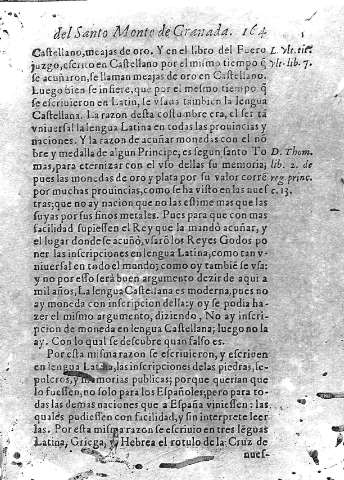 del Santo Monte de Granada. 164
Castellano, meajas de oro. Y en el libro del Fuero
L. Vlt. tit.
juzgo, escrito en Castellano por el mismo tiempo q̃
Vlt. lib. 7.
se acuñaron, se llaman meajas de oro en Castellano.
Luego bien se infiere, que por el mesmo tiempo q̃
se escriuieron en Latin, se vsaua tambien la lengua
Castellana. La razon desta costumbre era, el ser tã
vniuersal la lengua Latina en todas las prouincias y
naciones. Y la razon de acuñar monedas con el nõ
bre y medalla de algun Principe, es segun santo To
D. Thom.
mas, para eternizar con el vso dellas su memoria;
lib. 2. de
pues las monedas de oro y plata por su valor corrẽ
reg. princ.
por muchas prouincias, como se ha visto en las nues
c. 13.
tras; que no ay nacion que no las estime mas que las
suyas por sus finos metales. Pues para que con mas
facilidad supiessen el Rey que la mandò acuñar, y
el lugar donde se acuñò, vsarõ los Reyes Godos po
ner las inscripciones en lengua Latina, como tan v-
niuersal en todo el mundo; como oy tambiẽ se vsa:
y no por esso serà buen argumento dezir de aqui a
mil años, La lengua Castellana es moderna, pues no
ay moneda con inscripcion della: y oy se podia ha-
zer el mismo argumento, diziendo, No ay inscri-
pcion de moneda en lengua Castellana; luego no la
ay. Con lo qual se descubre quan falso es.
Por esta misma razon se escriuieron, y escriuen
en lengua Latina, las inscripciones de las piedras, se-
polcros, y memorias publicas; porque querian que
lo fuessen, no solo para los Españoles; pero para to-
das las demas naciones que a España viniessen: las
quales pudiessen con facilidad, y sin interprete leer
las. Por esta misma razon se escriuio en tres lẽguas
Latina, Griega, y Hebrea el rotulo de la Cruz de
nues-